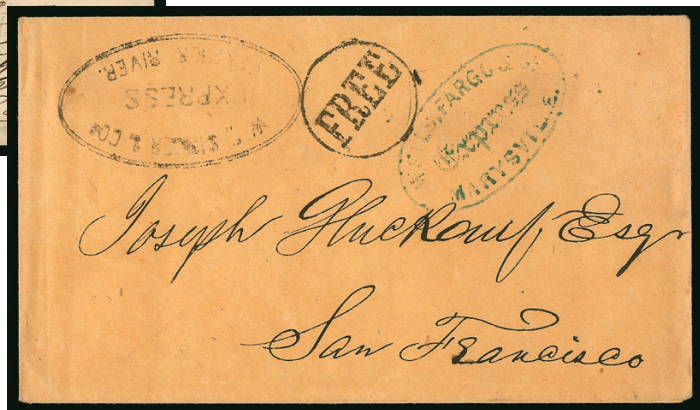 W. SINGER & CO'S
EXPRESS
FEATHER RIVER.
FREE
WELLS, FARGO & CO.
Express
MARYSVILLE.
Joseph Gluckauf, Esqr
San Francisco